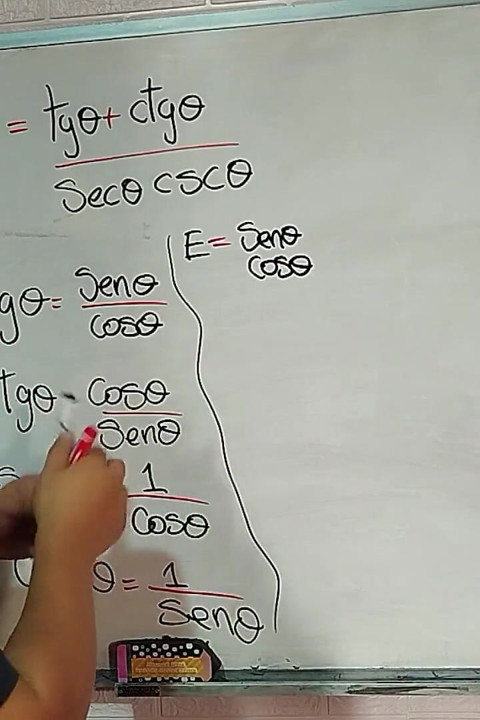 = tgθ + ctgθ
secθ cscθ
E = senθ
cosθ
gθ = senθ
cosθ
tgθ = cosθ
senθ
1
cosθ
θ = 1
senθ